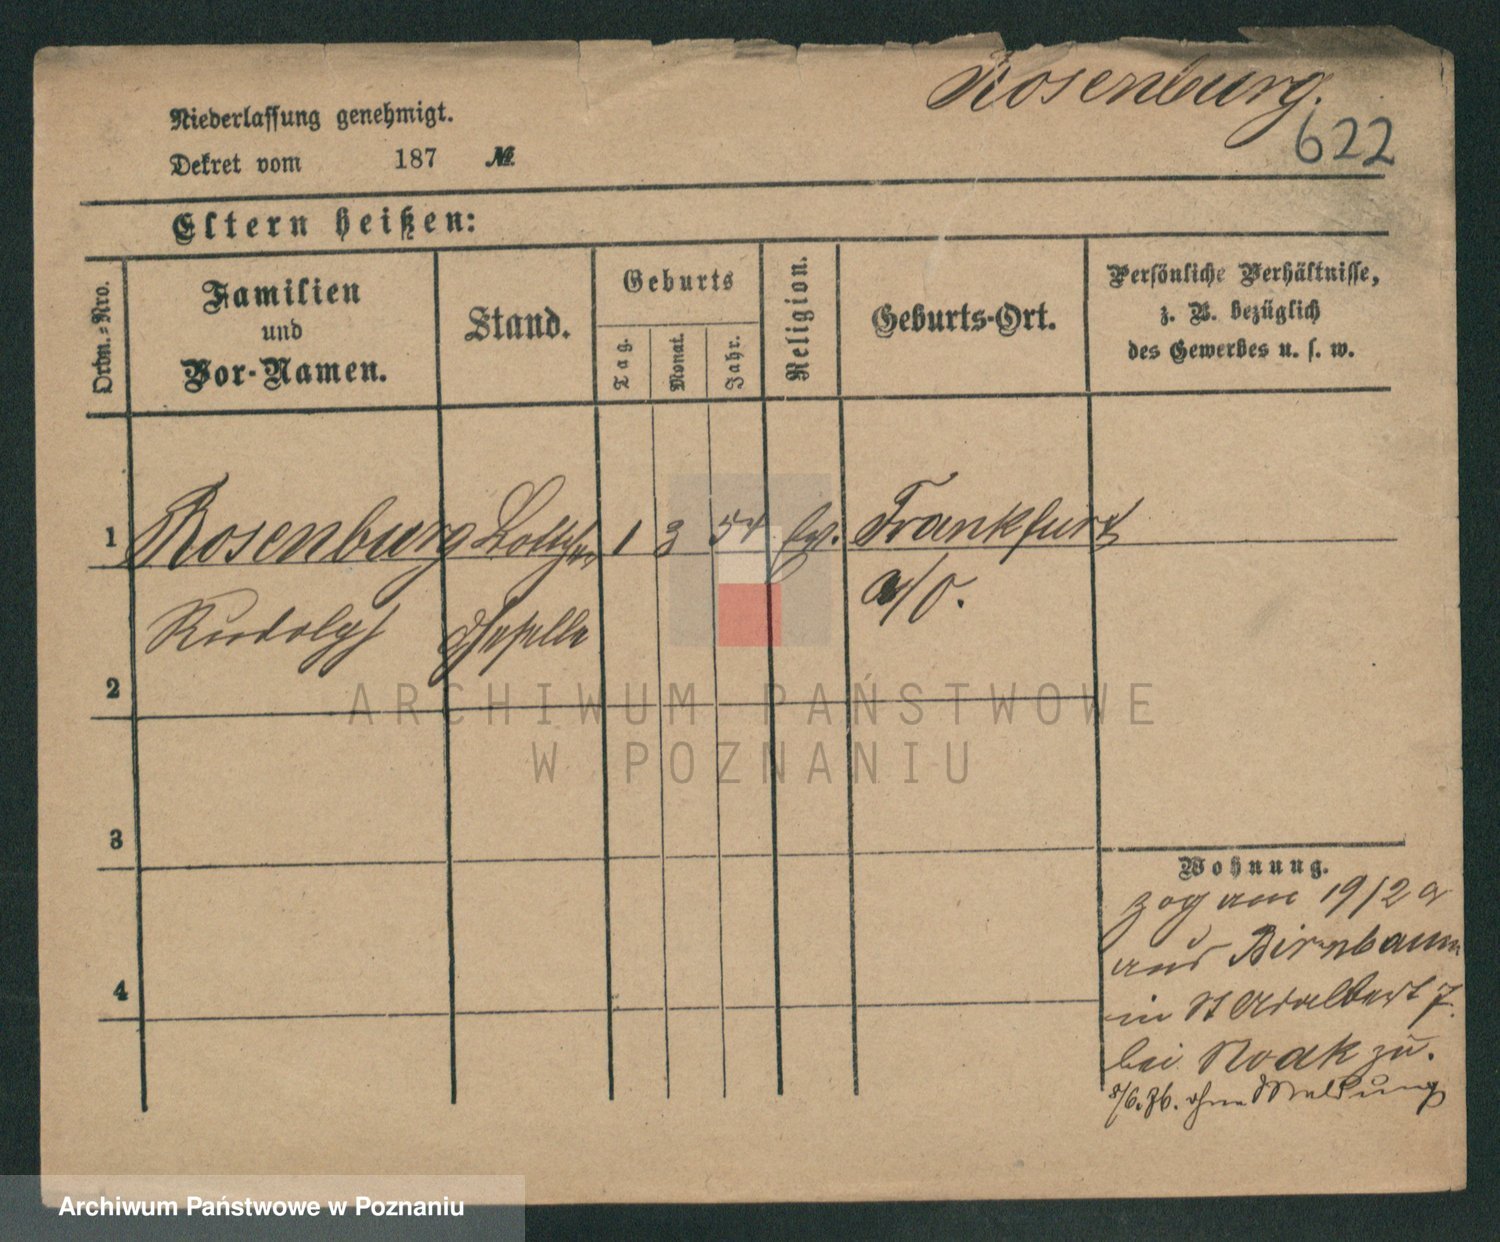 Rosenburg.
622
Niederlassung genehmigt.
Dekret vom 187 №
Eltern heißen:
Ordn.=Nro.
Familien
und
Vor-Namen.
Stand.
Geburts
Tag.
Monat.
Jahr.
Religion.
Geburts-Ort.
Persönliche Verhältnisse,
z. B. bezüglich
des Gewerbes u. s. w.
1 Rosenburg 1 3 54 Frankfurt
Rudolph a/O.
2
3
4
Wohnung.
zog am 19/2
aus Birnbaum
in St Adalbert 7.
bei Noak zu.
8/6. 76. ohne Meldung
ARCHIWUM PAŃSTWOWE
W POZNANIU
Archiwum Państwowe w Poznaniu